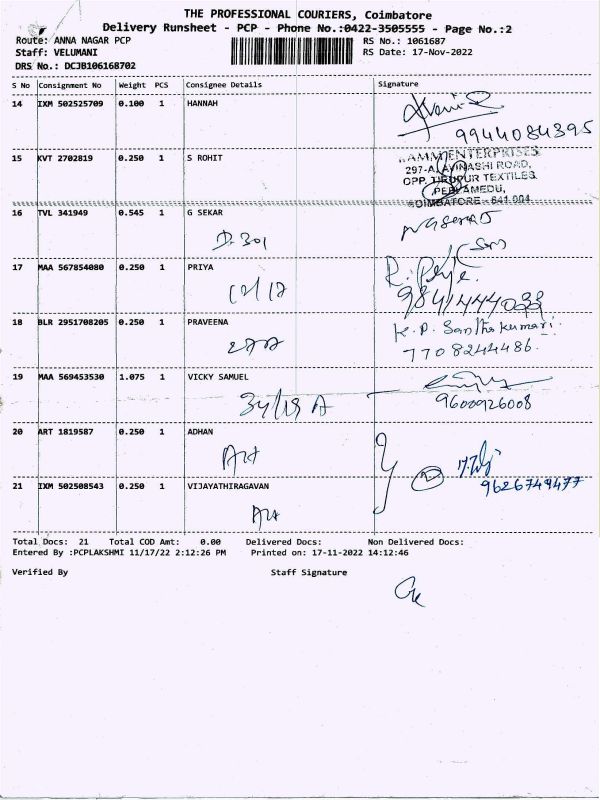 THE PROFESSIONAL COURIERS, Coimbatore
Delivery Runsheet - PCP - Phone No.:0422-3505555 - Page No.:2
Route: ANNA NAGAR PCP
RS No.: 1061687
Staff: VELUMANI
RS Date: 17-Nov-2022
DRS No.: DCJB106168702
S No Consignment No Weight PCS Consignee Details Signature
14 IXM 502525709 0.100 1 HANNAH
9944084395
15 KVT 2702819 0.250 1 S ROHIT
ENTERPRISES
297-A, AVINASHI ROAD,
OPP. TIRUPUR TEXTILES
PEELAMEDU,
COIMBATORE - 641 004
16 TVL 341949 0.545 1 G SEKAR
D-301
17 MAA 567854080 0.250 1 PRIYA
18 BLR 2951708205 0.250 1 PRAVEENA
K.P. Santhakumari.
7708244486.
19 MAA 569453530 1.075 1 VICKY SAMUEL
9600926008
20 ART 1819587 0.250 1 ADHAN
2
9626749477
21 IXM 502508543 0.250 1 VIJAYATHIRAGAVAN
Total Docs: 21 Total COD Amt: 0.00 Delivered Docs: Non Delivered Docs:
Entered By :PCPLAKSHMI 11/17/22 2:12:26 PM Printed on: 17-11-2022 14:12:46
Verified By Staff Signature